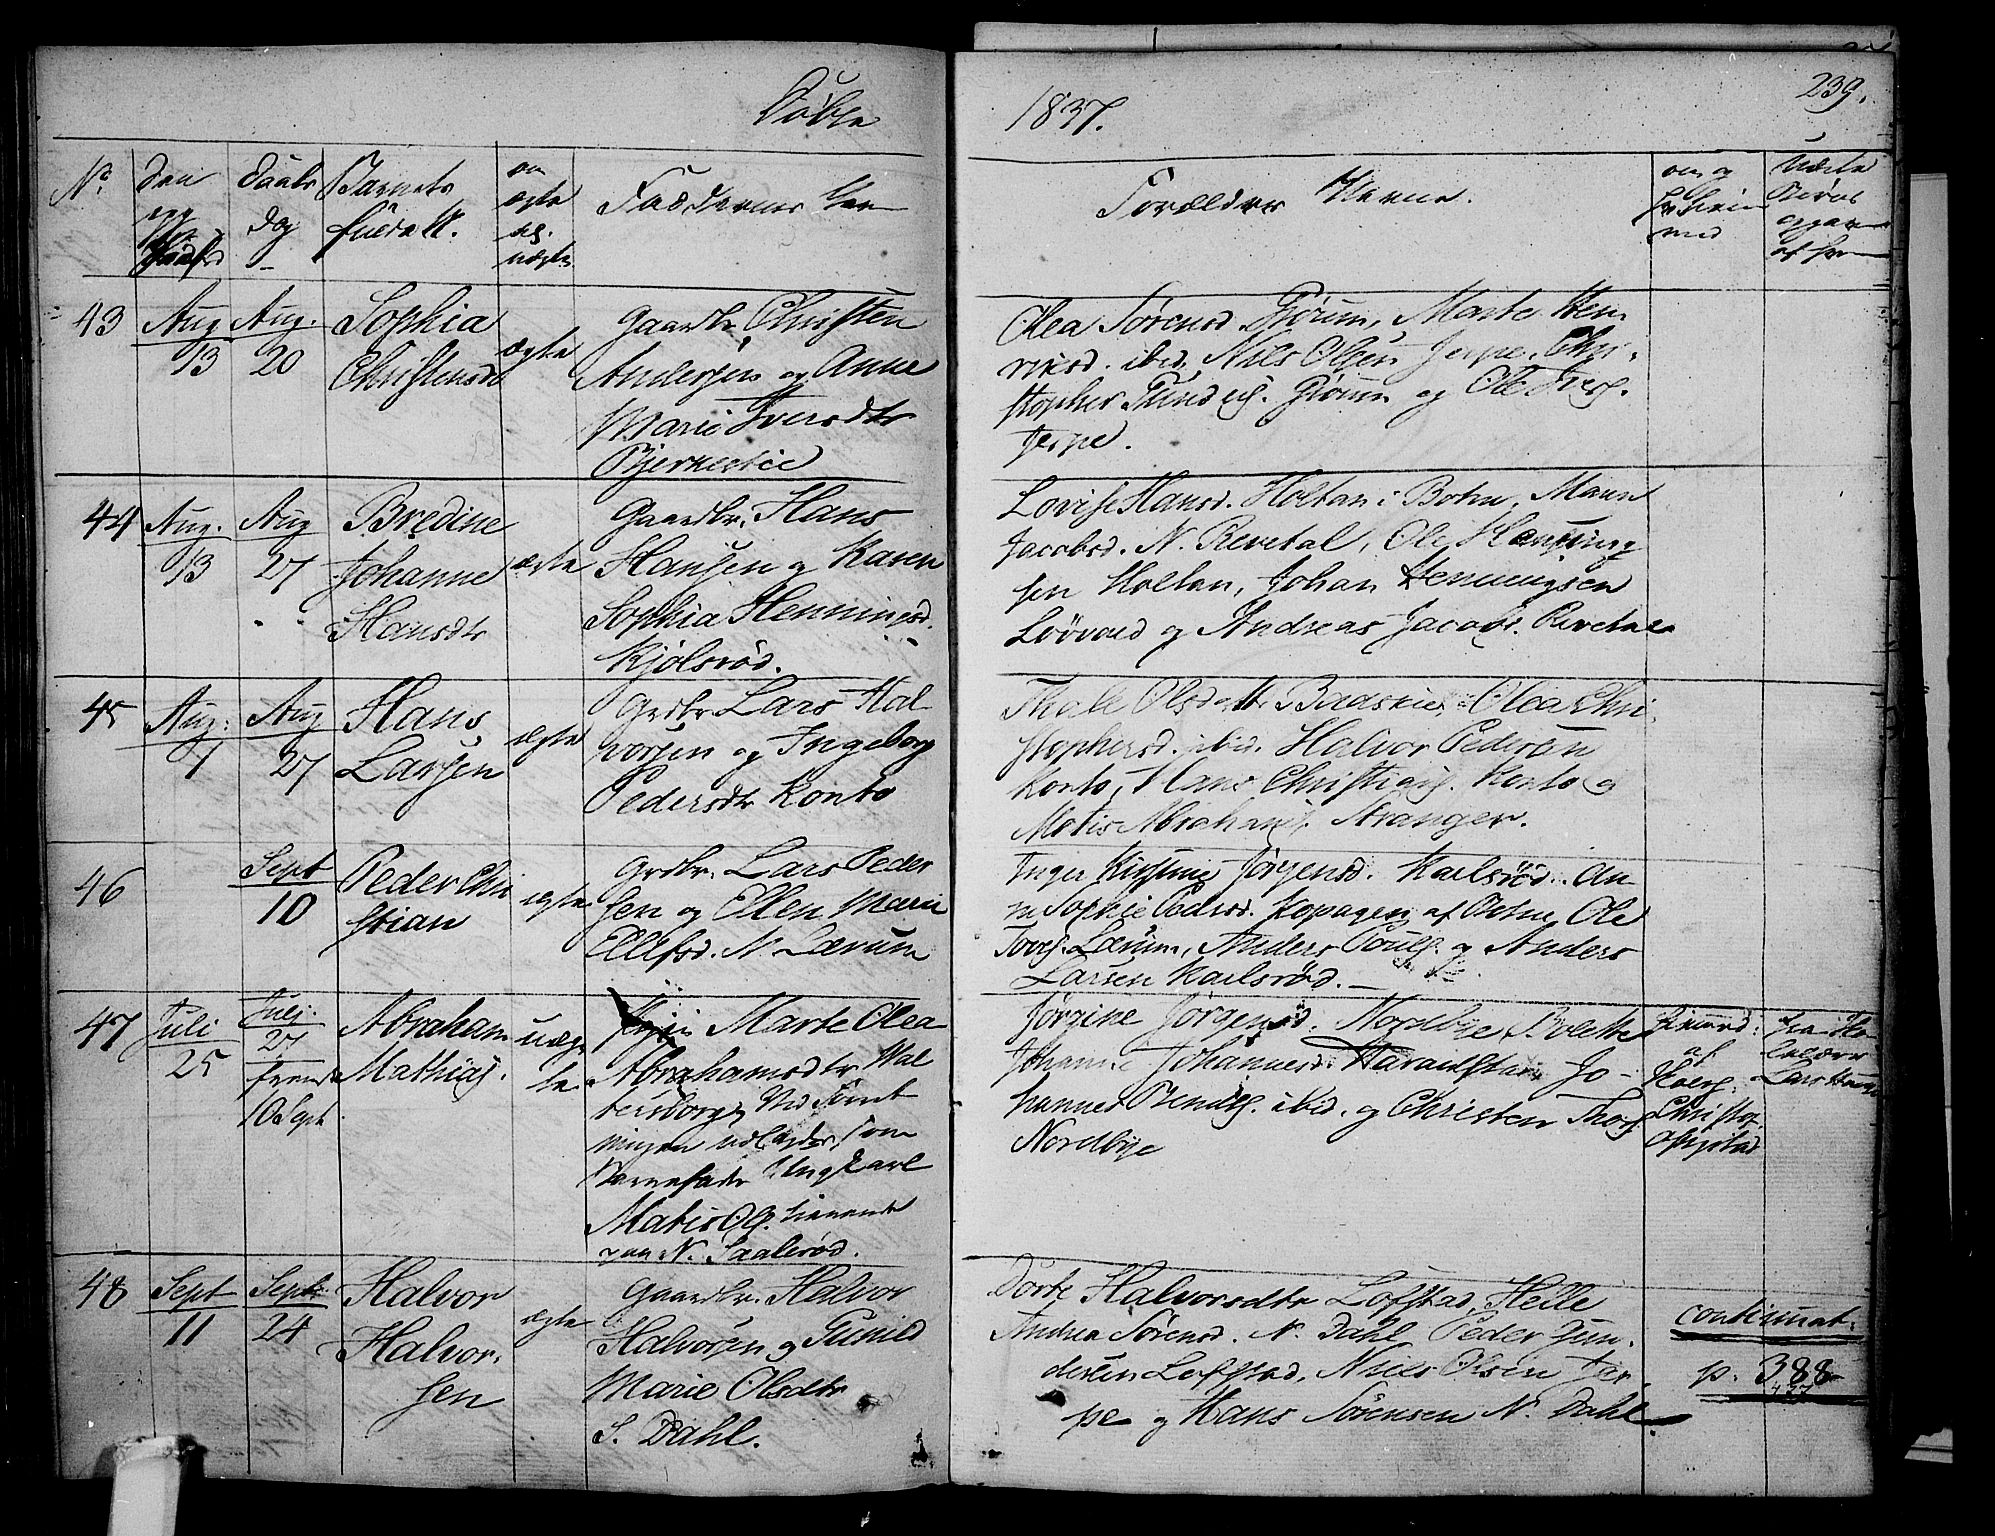 Døbte
1837.
239.
No
Den
Daabs
Dag
Barnets
fulde N.
om
ægte
el.
uægte
Faddernes
Forældres Navne.
om og
med
43
Aug
13
Aug.
20
Sophia
Christensdt
ægte
Gaardbr. Christen
Andersen og Anne
Marie Iversdtr
Bjerkestie
Olea Sørensd. Gjørum, Marte Hen
riksd. ibid, Niels Olsen Jerpe, Chri-
stopher Gundes. Gjørum og Ole Ivers.
Jerpe.
44
Aug.
13
Aug
27
Bredine
Johanne
Hansdtr
ægte
Gaardbr. Hans
Hansen og Karen
Sophia Henningsd.
Kjølsrød.
Lovise Hansd. Holtan i Bohn, Maren
Jacobsd. N. Revetal, Ole Henning
sen Holtan, Johan Henningsen
Løvald og Andreas Jacobs. Revetal
45
Aug.
7
Aug
27
Hans
Larsen
ægte
Grdbr Lars Hal
vorsen og Ingeborg
Pedersdtr Konto
Thale Olsdatt. Baaserud, Olea Chri
stophersd. ibid. Halvor Pedersen
Konto, Hans Christians. Konto og
Matis Abrahams. Aranger.
46
Sept
10
Peder Chri
stian
ægte
Grdbr. Lars Peder
sen og Ellen Marie
Ellefsd. N. Lærum
Inger Kirstine Jørgensd. Karlsrød. An
ne Sophie Pedersd. Kopagen af Botne, Ole
Tores. Lærum, Anders Pouls. og Anders
Larsen Karlsrød.
47
Juli
25
Julj.
27
fremst
10 Sept.
Abraham
Mathias.
uæg
te
Pige Marte Olea
Abrahamsdtr Wal
bersborg, Ved Foret
ningen udlagdes som
Barnefader Ungkarl
Matis Ols. tienende
paa N. Saalerød.
Jørgine Jørgensd. Nordbye, Bolette
Johanne Johannesd. Haraldstad, Jo-
hannes Bendts. ibid. og Christen Thors
Nordbye
af
Christop.
fra
Lars Hans
48
Sept
11
Sept.
24
Halvor
Halvor-
sen
ægte
Gaardbr. Halvor
Halvorsen og Gunild
Marie Olsdtr
S. Dahl.
Dorte Halvorsdtr Lofstad, Helle
Andrea Sørensd. N. Dahl Peder Gun-
dersen Lofstad, Niels Olsen Jer-
pe og Hans Sørensen N. Dahl.
continuat.
p. 388